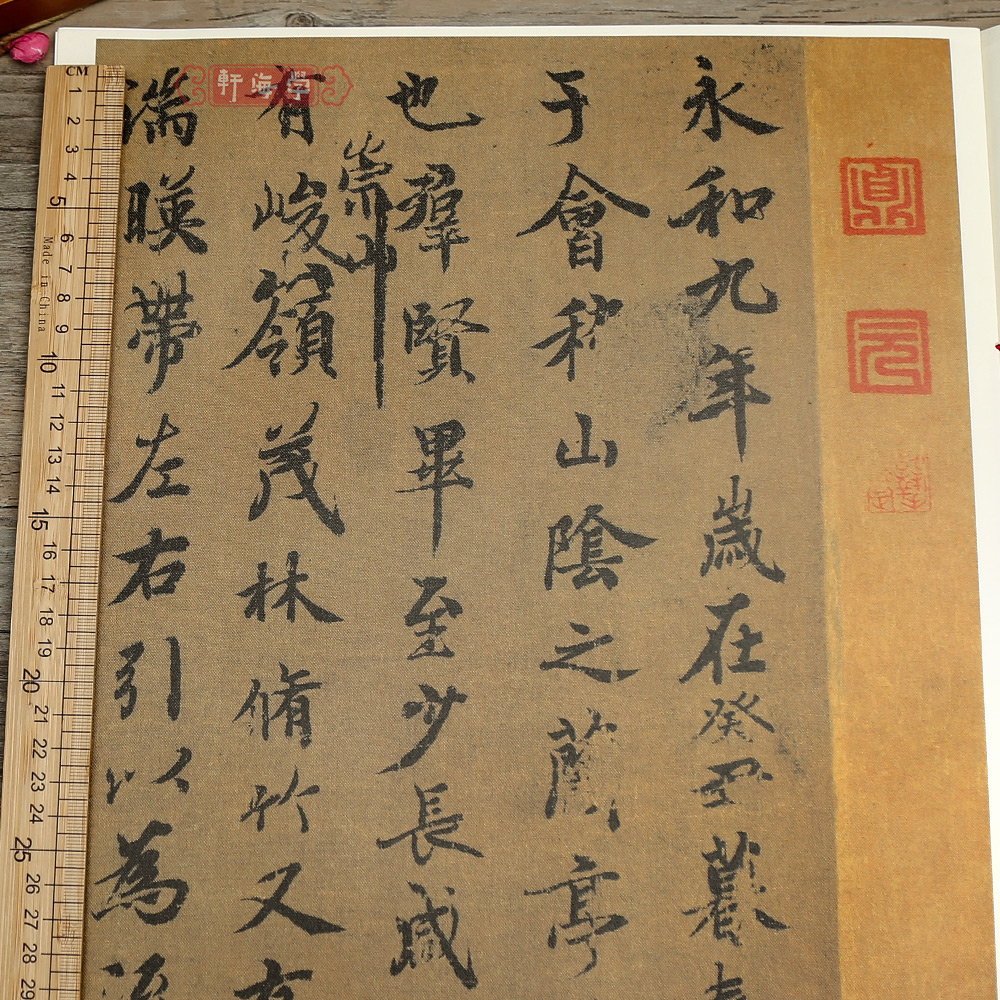 永和九年歲在癸丑暮春
于會稽山陰之蘭亭
也羣賢畢至少長咸
有崇山峻嶺茂林脩竹又有
湍暎帶左右引以為流
學海軒
元
CM
1
2
3
4
5
6
7
8
9
10
11
12
13
14
15
16
17
18
19
20
21
22
23
24
25
26
27
28
29
Made in China